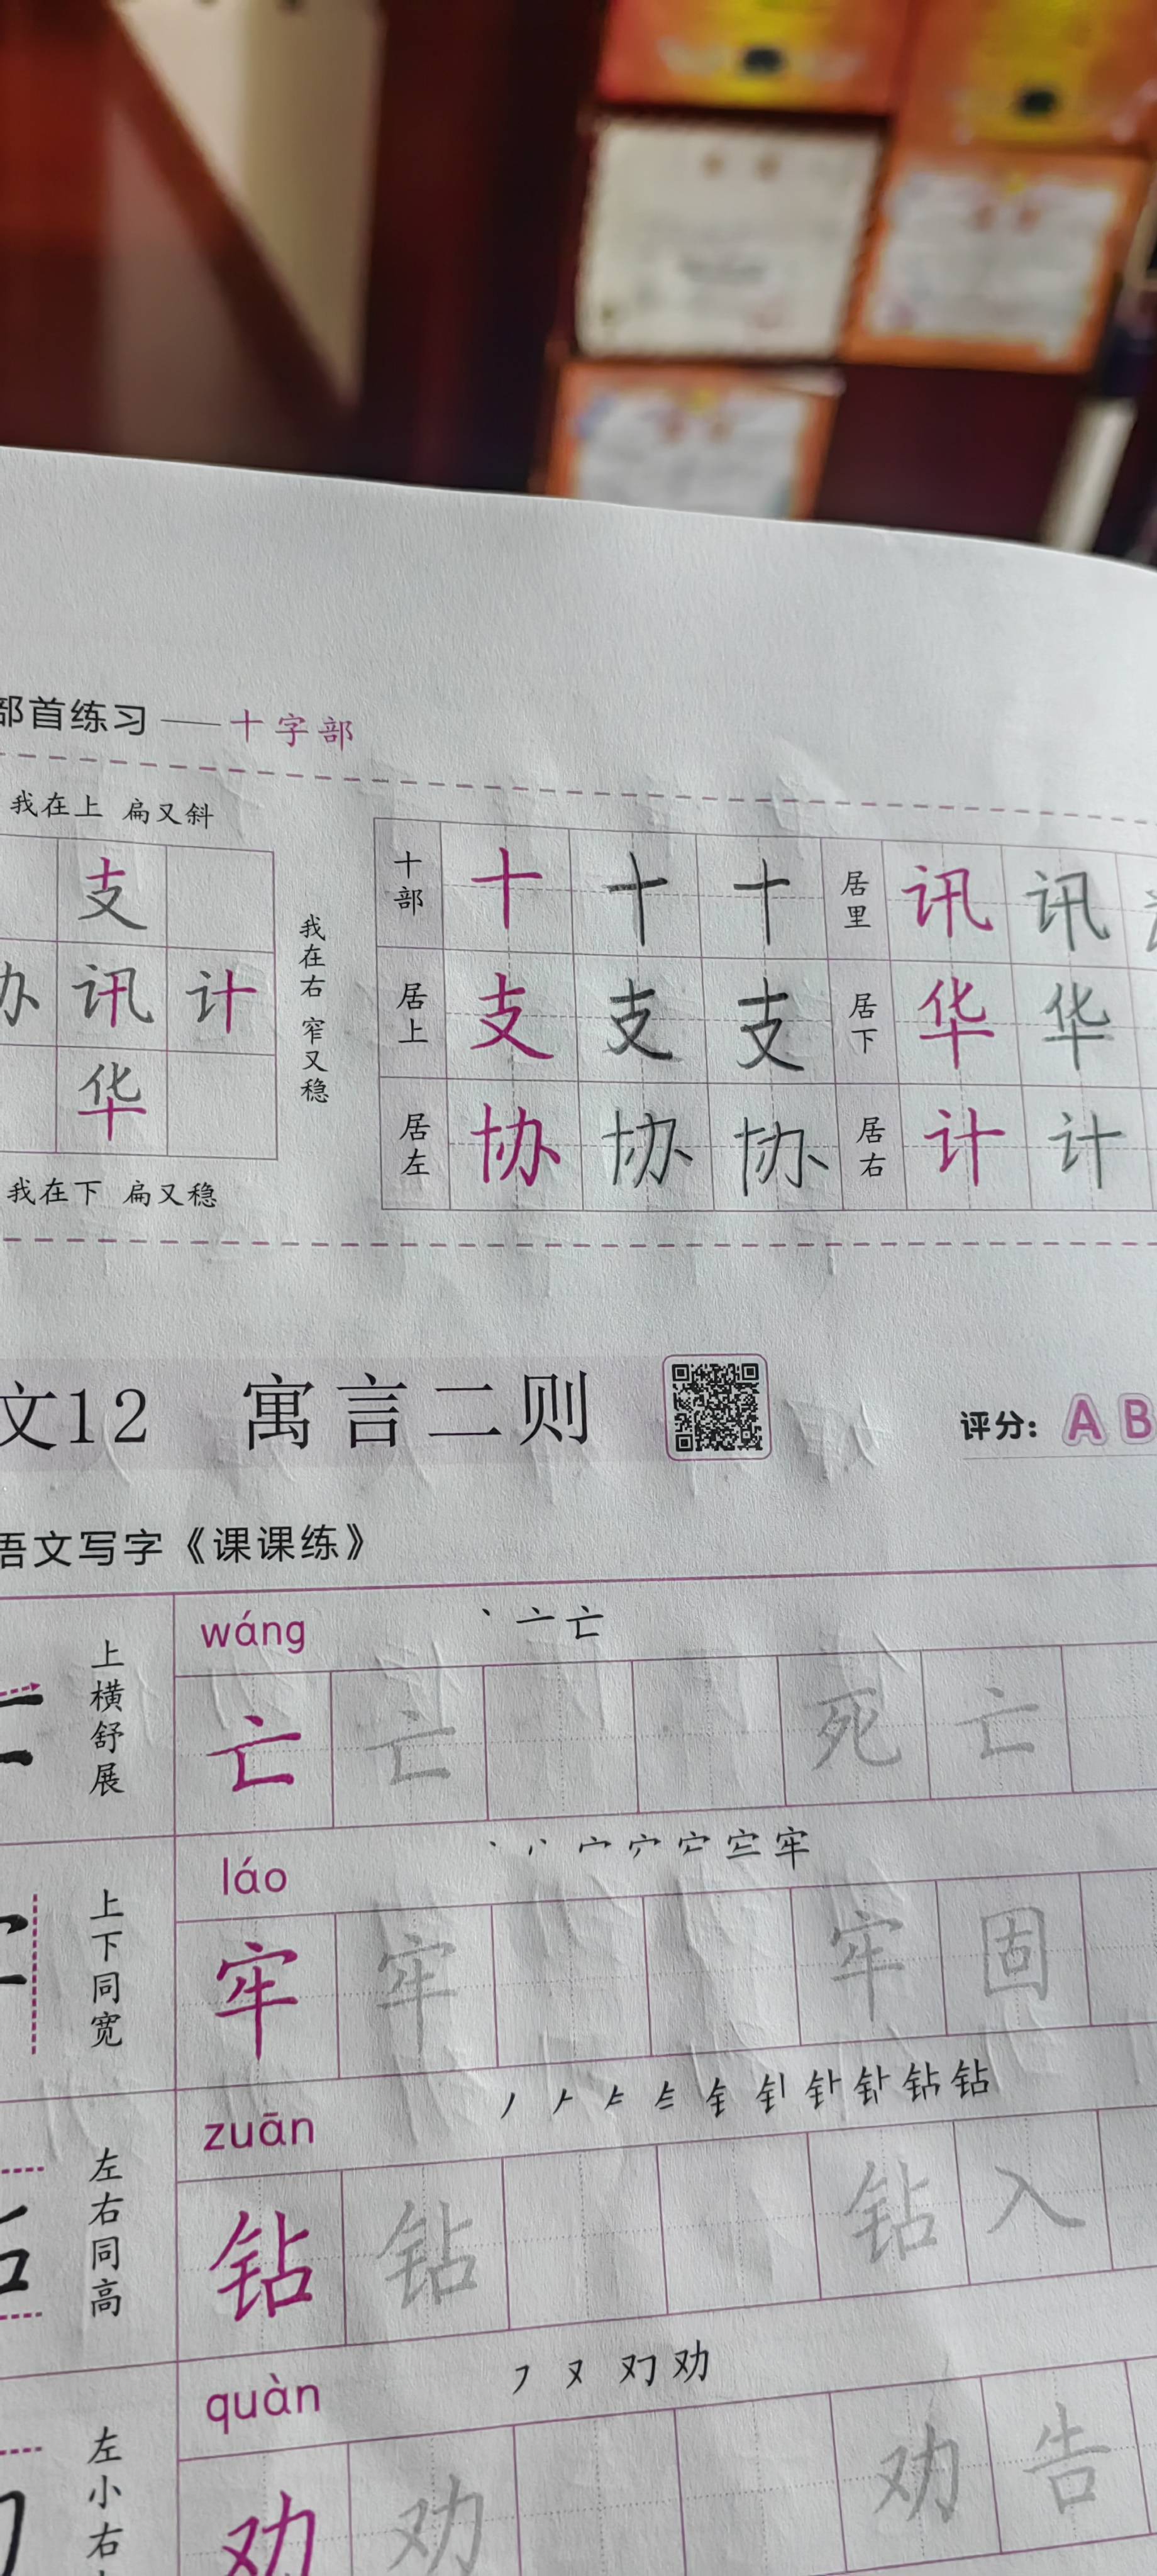 部首练习——十字部
我在上 扁又斜
支
办 讯 计
华
我在右 窄又稳
我在下 扁又稳
十部 十 十 十 居里 讯 讯
居上 支 支 支 居下 华 华
居左 协 协 协 居右 计 计
文12 寓言二则
评分: A B
语文写字《课课练》
上横舒展
wáng
亡 亡 死 亡
上下同宽
láo
牢 牢 牢 固
左右同高
zuān
钻 钻 钻 入
左小右
quàn
劝 劝 劝 告